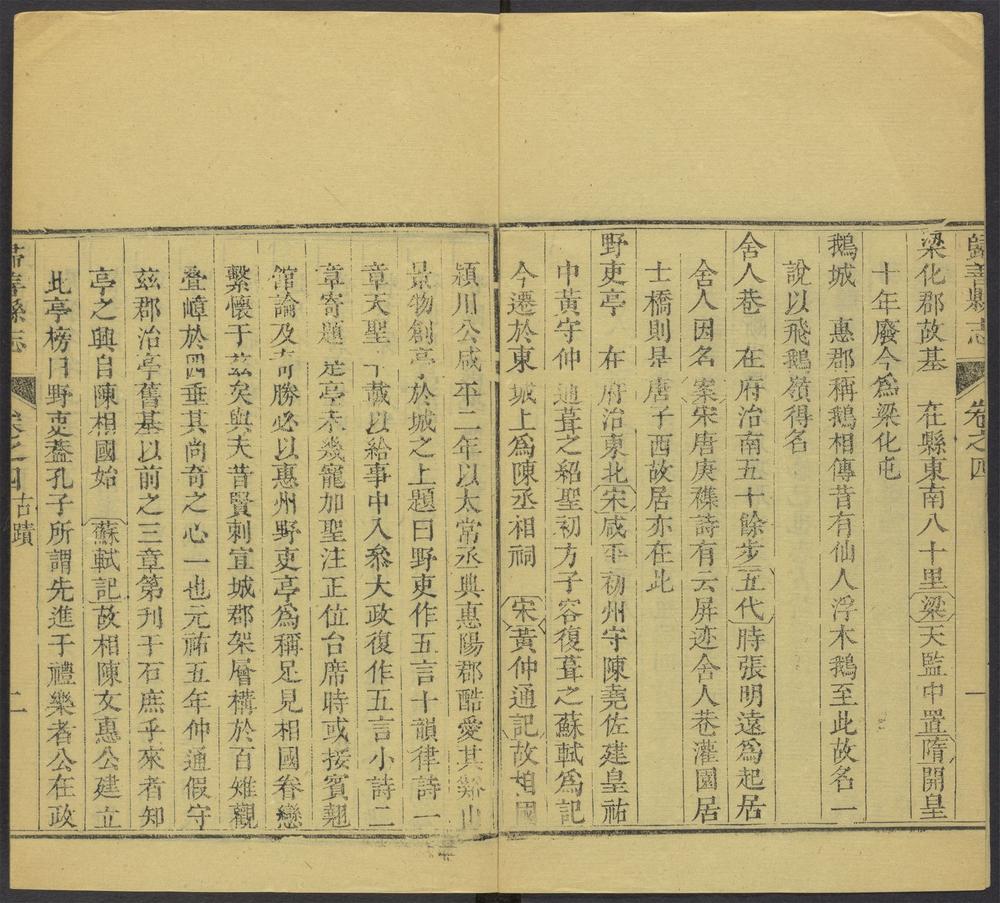 歸善縣志 卷之四 一
梁化郡故基 在縣東南八十里梁天監中置隋開皇
十年廢今爲梁化屯
鵝城 惠郡稱鵝相傳昔有仙人浮木鵝至此故名一
說以飛鵝嶺得名
舍人巷 在府治南五十餘步五代時張明遠爲起居
舍人因名案宋唐庚襍詩有云屏迹舍人巷灌園居
士橋則是唐子西故居亦在此
野吏亭 在府治東北宋咸平初州守陳堯佐建皇祐
中黃守仲通葺之紹聖初方子容復葺之蘇軾爲記
今遷於東城上爲陳丞相祠 宋黃仲通記故相國
潁川公咸平二年以太常丞典惠陽郡酷愛其谿山
景物創亭於城之上題曰野吏作五言十韻律詩一
章天聖 十載以給事中入叅大政復作五言小詩二
章寄題是亭未幾寵加聖注正位台席時或接賓翹
館論及奇勝必以惠州野吏亭爲稱足見相國眷戀
繫懷于茲矣與夫昔賢刺宣城郡架層構於百雉觀
疊嶂於四垂其尚奇之心一也元祐五年仲通假守
茲郡治亭舊基以前之三章第刋于石庶乎來者知
亭之興自陳相國始 蘇軾記故相陳文惠公建立
此亭榜曰野吏蓋孔子所謂先進于禮樂者公在政
歸善縣志 卷之四古蹟 二